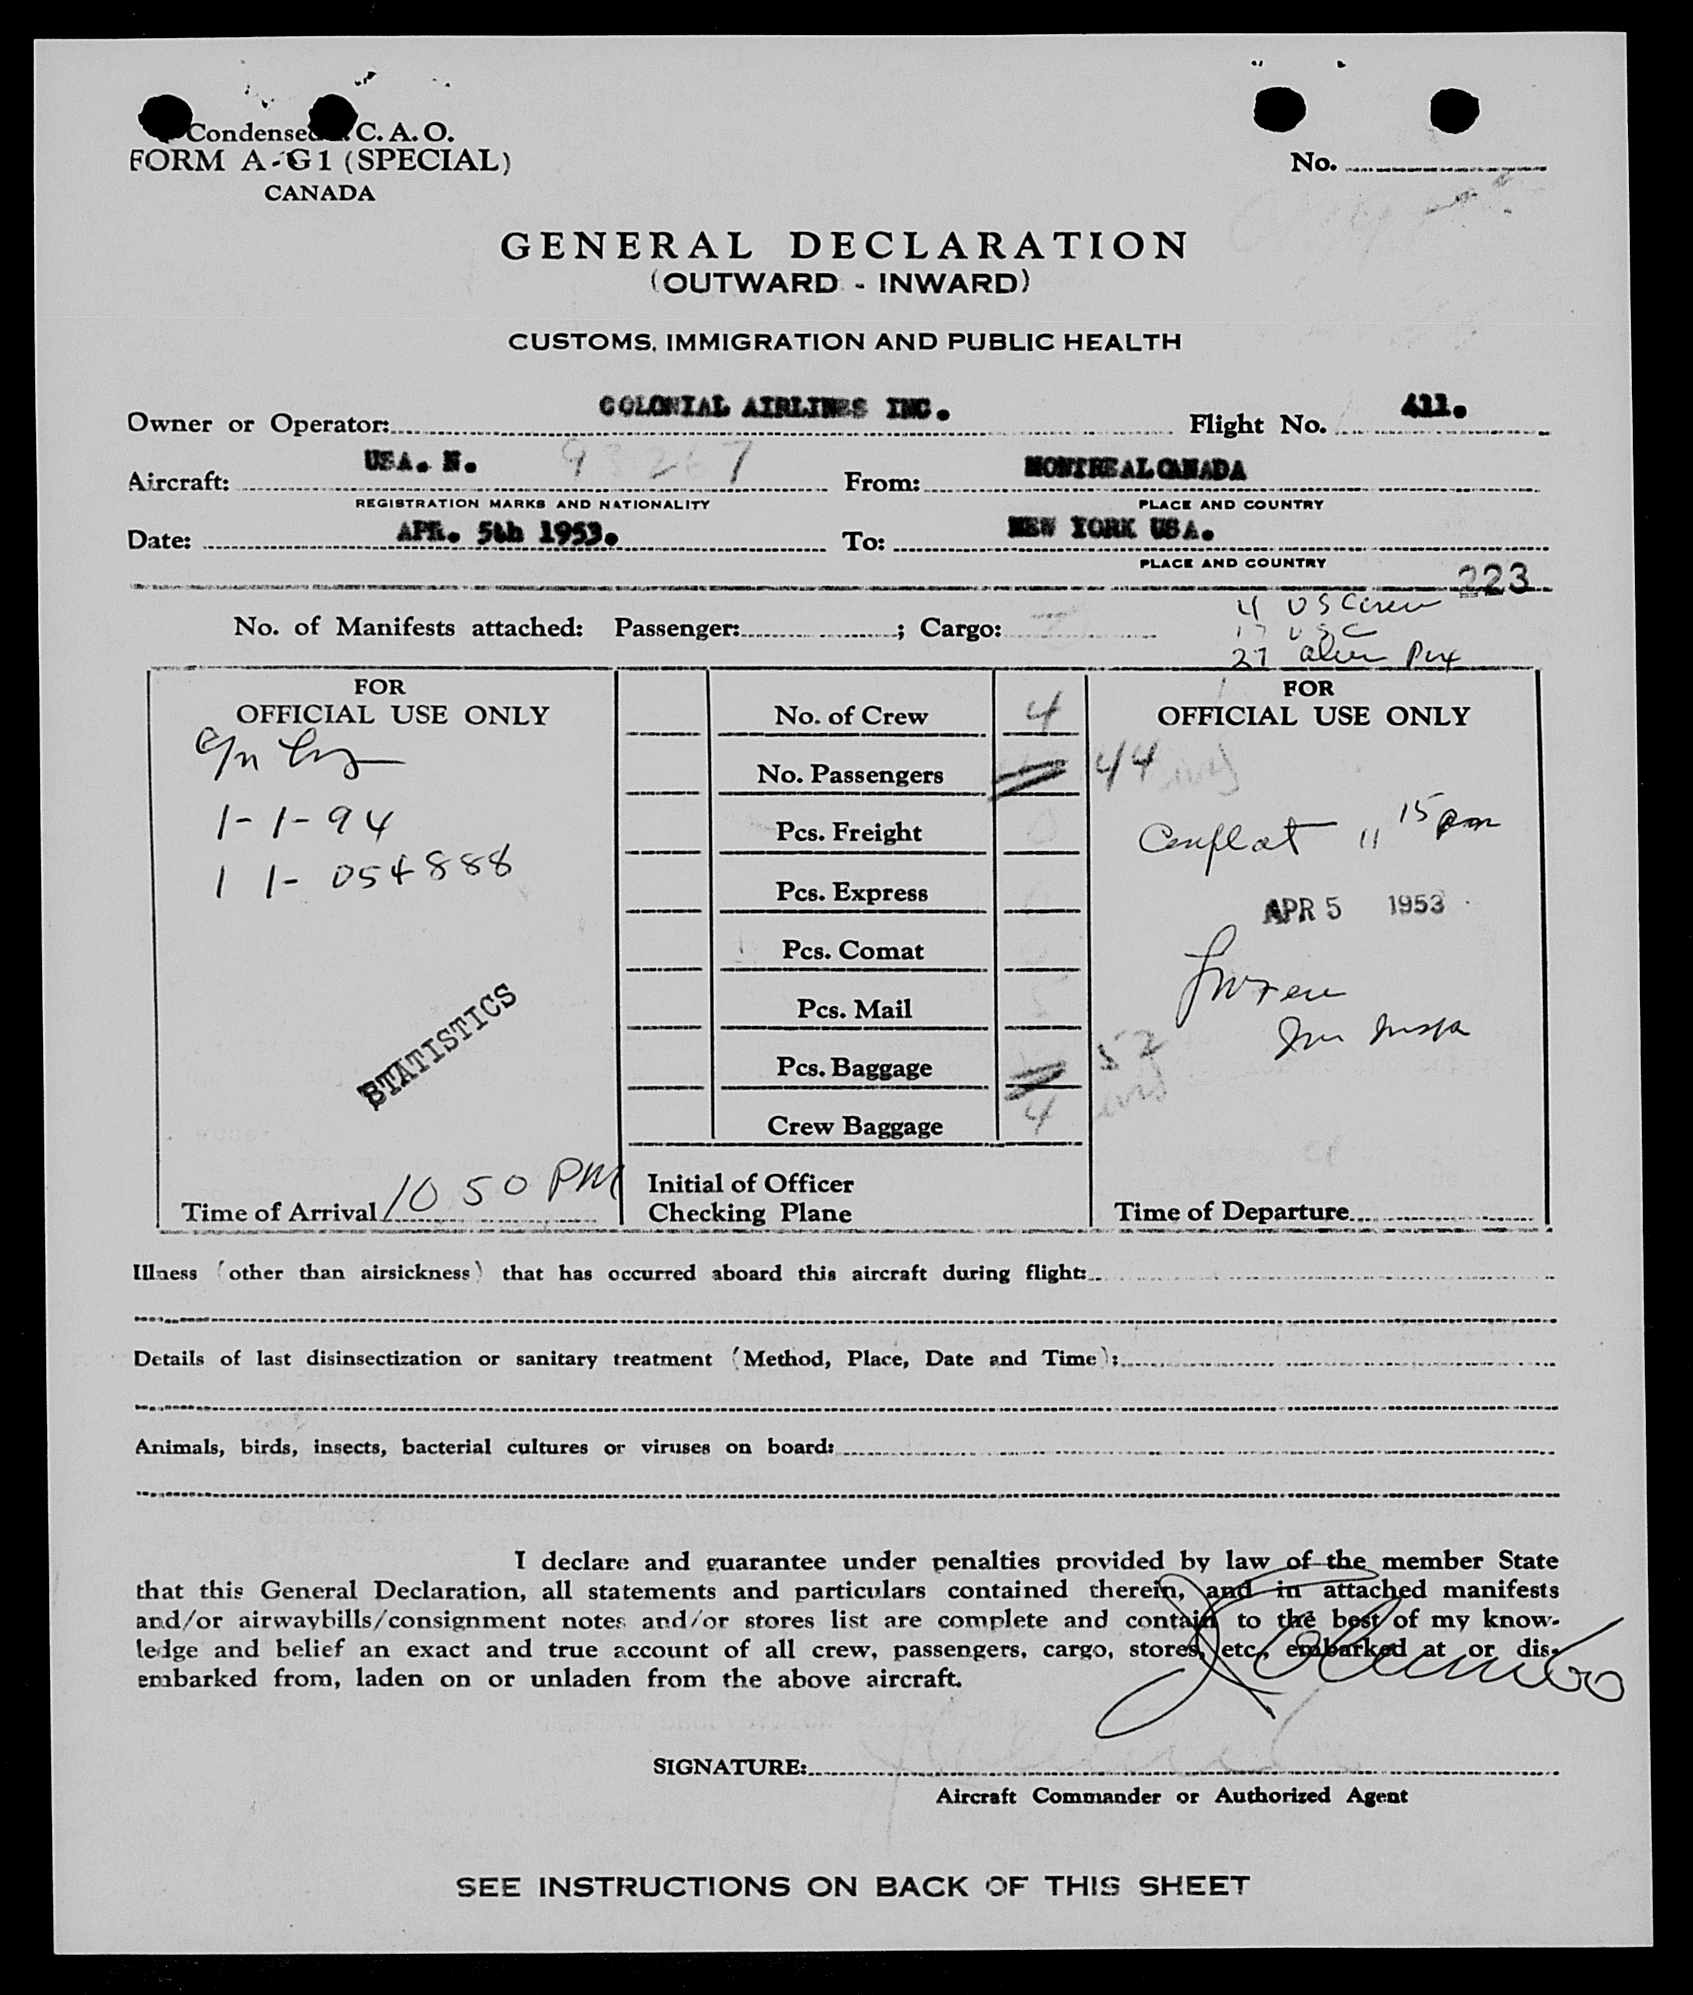 Condensed I.C.A.O.
FORM A-G1 (SPECIAL)
CANADA
No.
GENERAL DECLARATION
(OUTWARD - INWARD)
CUSTOMS, IMMIGRATION AND PUBLIC HEALTH
Owner or Operator: COLONIAL AIRLINES INC. Flight No. 411.
Aircraft: USA. N. 93267 From: MONTREAL CANADA
REGISTRATION MARKS AND NATIONALITY PLACE AND COUNTRY
Date: APR. 5th 1953. To: NEW YORK USA.
PLACE AND COUNTRY
223
4 US Crew
No. of Manifests attached: Passenger: ; Cargo: 17 USC
27 alien Px
FOR OFFICIAL USE ONLY
1-1-94
1 1- 054888
STATISTICS
Time of Arrival 10 50 PM
No. of Crew 4
No. Passengers 44
Pcs. Freight
Pcs. Express
Pcs. Comat
Pcs. Mail
Pcs. Baggage 52
Crew Baggage 4
Initial of Officer
Checking Plane
FOR
OFFICIAL USE ONLY
11 15 pm
APR 5 1953
Time of Departure
Illness (other than airsickness) that has occurred aboard this aircraft during flight:
Details of last disinsectization or sanitary treatment (Method, Place, Date and Time):
Animals, birds, insects, bacterial cultures or viruses on board:
I declare and guarantee under penalties provided by law of the member State
that this General Declaration, all statements and particulars contained therein, and in attached manifests
and/or airwaybills/consignment notes and/or stores list are complete and contain to the best of my know-
ledge and belief an exact and true account of all crew, passengers, cargo, stores, etc., embarked at or dis-
embarked from, laden on or unladen from the above aircraft.
SIGNATURE:
Aircraft Commander or Authorized Agent
SEE INSTRUCTIONS ON BACK OF THIS SHEET